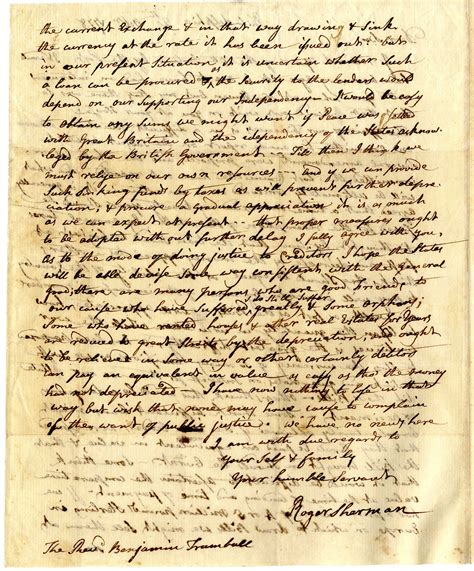 the current Exchange & in that way drawing & Sink
the currency at the rate it has been issued out. but
in our present Situation, it is uncertain whether Such
a loan can be procured, as the Security to the lenders would
depend on our Supporting our Independency. It would be easy
to obtain any Sums we might want if Peace was Settled
with Great Britain and the independency of the States acknow-
leged by the British Government. Till then I think we
must relye on our own resources — and if we can provide
Such Sinking funds by taxes as will prevent further depre-
ciation, & procure a gradual appreciation it is as much
as we can expect at present — that proper measures ought
to be adopted without further delay I fully agree with you,
as to the mode of doing justice to Creditors I hope the States
will be able devise Some way consistent with the General
good, there are many persons who are good friends to
our cause who have Suffered & do Still Suffer greatly & Some orphans;
Some who have rented houses & other real Estates for Years
are reduced to great Straits by the depreciation, and ought
to be relieved in some way or other. certainly debtors
can pay an equivalent in value as easy as tho' the money
had not depreciated — I have now nothing to in that
way but wish that none may have cause to complain
of the want of public justice. we have no news here
I am with due regards to
Your Self & family
Your humble Servant
Roger Sherman
The Revd. Benjamin Trumbull